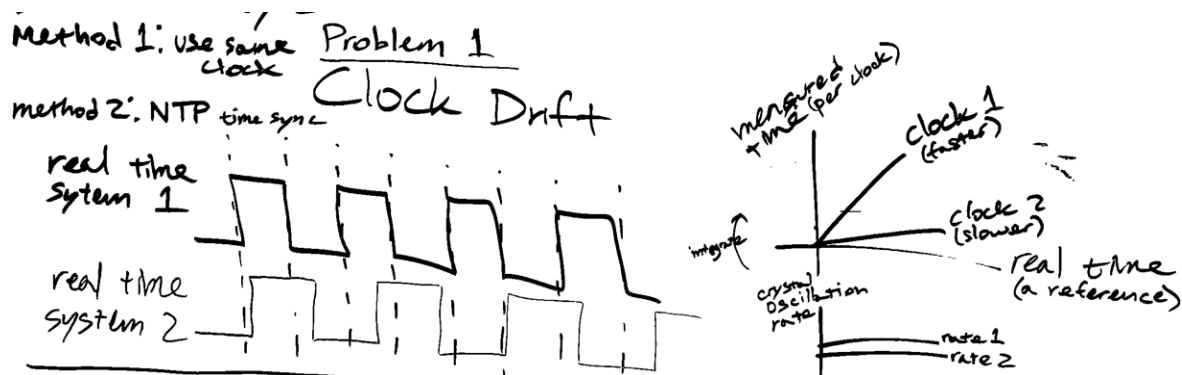 Method 1: use same
clock
Problem 1
Clock Drift
method 2: NTP time sync
real time
sytem 1
real time
system 2
measured
time (per clock)
clock 1
(faster)
clock 2
(slower)
integrate
real time
(a reference)
crystal
oscillation
rate
rate 1
rate 2